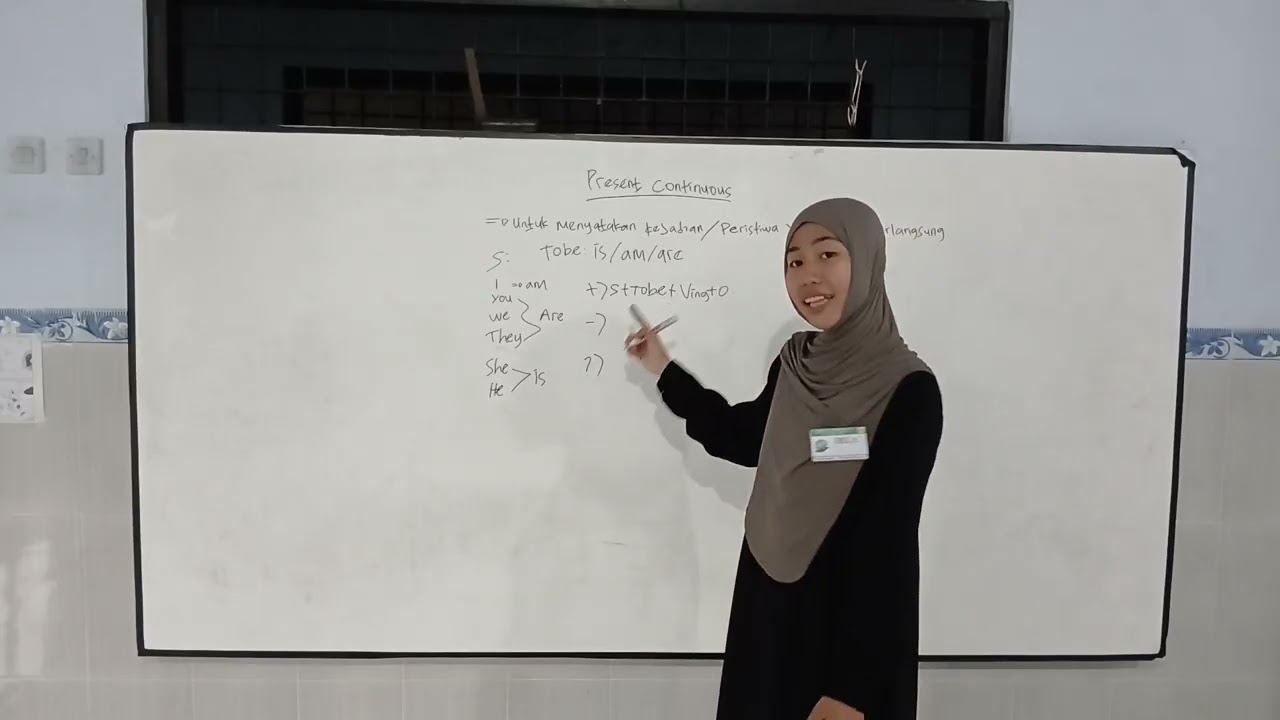 Present Continuous
=> untuk menyatakan kejadian/Peristiwa
S: Tobe: is/am/are
I => am +) S+Tobe+Ving+O
you
we Are -)
They
She ?)
He is